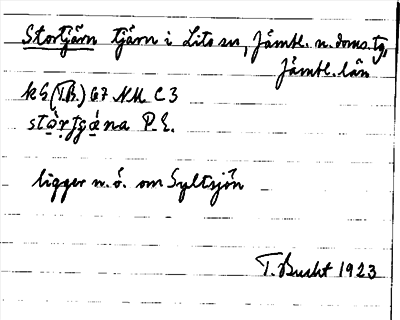 Stortjärn tjärn i Lits sn, Jämtl. n. doms. tg,
Jämtl. län
kE (T.B.) 67 NM C 3
P. E.
ligger n. ö. om Syltsjön
T. Bucht 1923